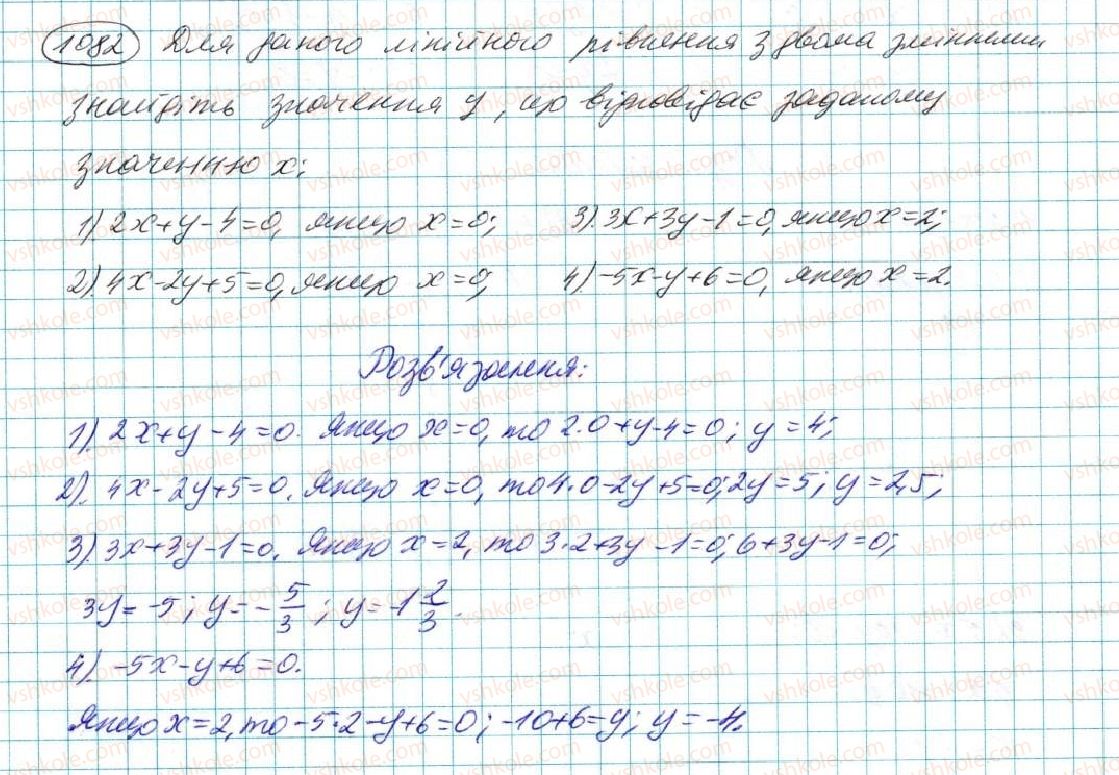 1082 Для даного лінійного рівняння з двома змінними
знайдіть значення y, що відповідає заданому
значенню x:
1) 2x+y-4=0, якщо x=0; 3). 3x+3y-1=0, якщо x=2;
2). 4x-2y+5=0, якщо x=0; 4) -5x-y+6=0, якщо x=2.
Розв'язання:
1). 2x+y-4=0. Якщо x=0, то 2·0+y-4=0; y=4;
2). 4x-2y+5=0. Якщо x=0, то 4·0-2y+5=0; 2y=5; y=2,5;
3). 3x+3y-1=0. Якщо x=2, то 3·2+3y-1=0; 6+3y-1=0;
3y=-5; y=-5/3; y=-1 2/3.
4). -5x-y+6=0.
Якщо x=2, то -5·2-y+6=0; -10+6=y; y=-4.